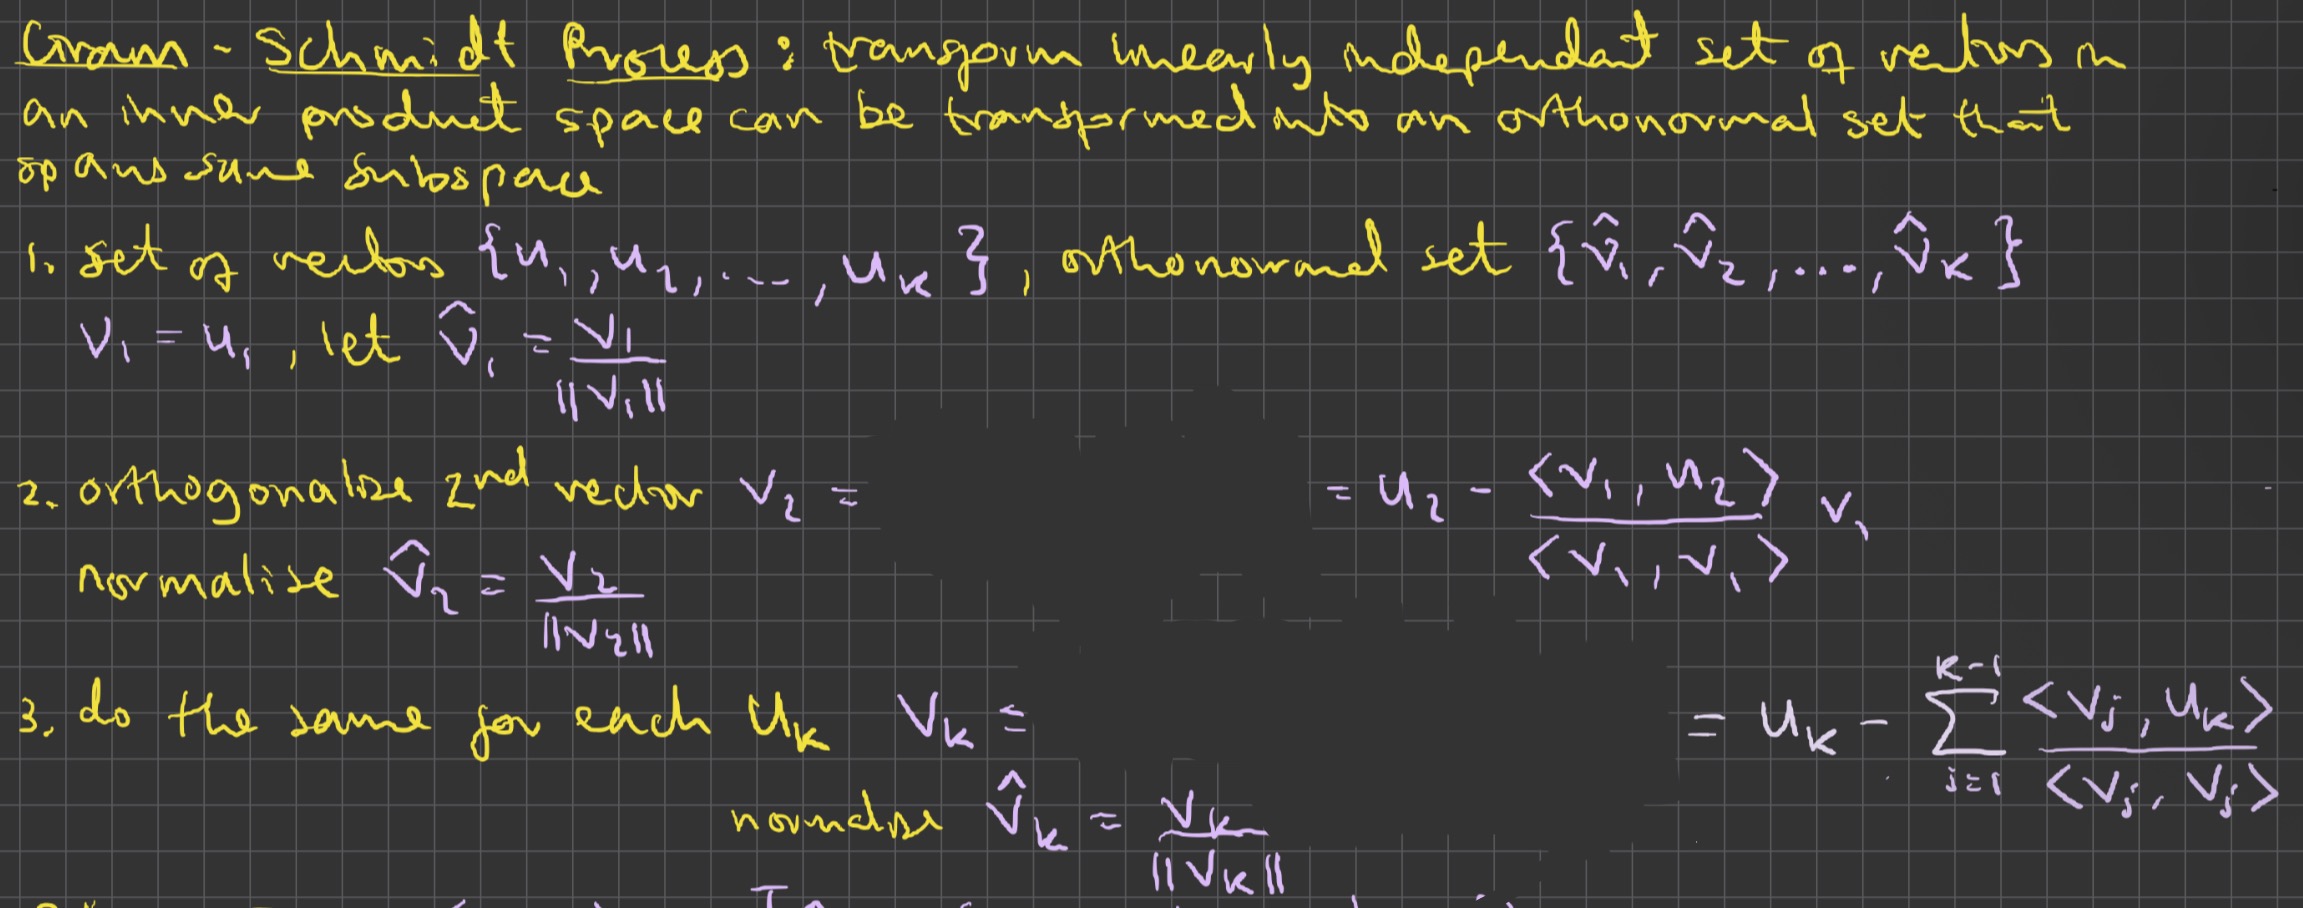 Gram - Schmidt Process : transform linearly independant set of vectors in
an inner product space can be transformed into an orthonormal set that
spans same subspace
1. set of vectors {u₁, u₂, ..., u_K}, orthonormal set {v̂₁, v̂₂, ..., v̂_K}
v₁ = u₁, let v̂₁ = v₁ / ||v₁||
2. orthogonalise 2nd vector v₂ = = u₂ - <v₁, u₂> / <v₁, v₁> v₁
normalise v̂₂ = v₂ / ||v₂||
3. do the same for each u_k v_k = = u_k - Σ_{j=1}^{k-1} <v_j, u_k> / <v_j, v_j>
normalise v̂_k = v_k / ||v_k||